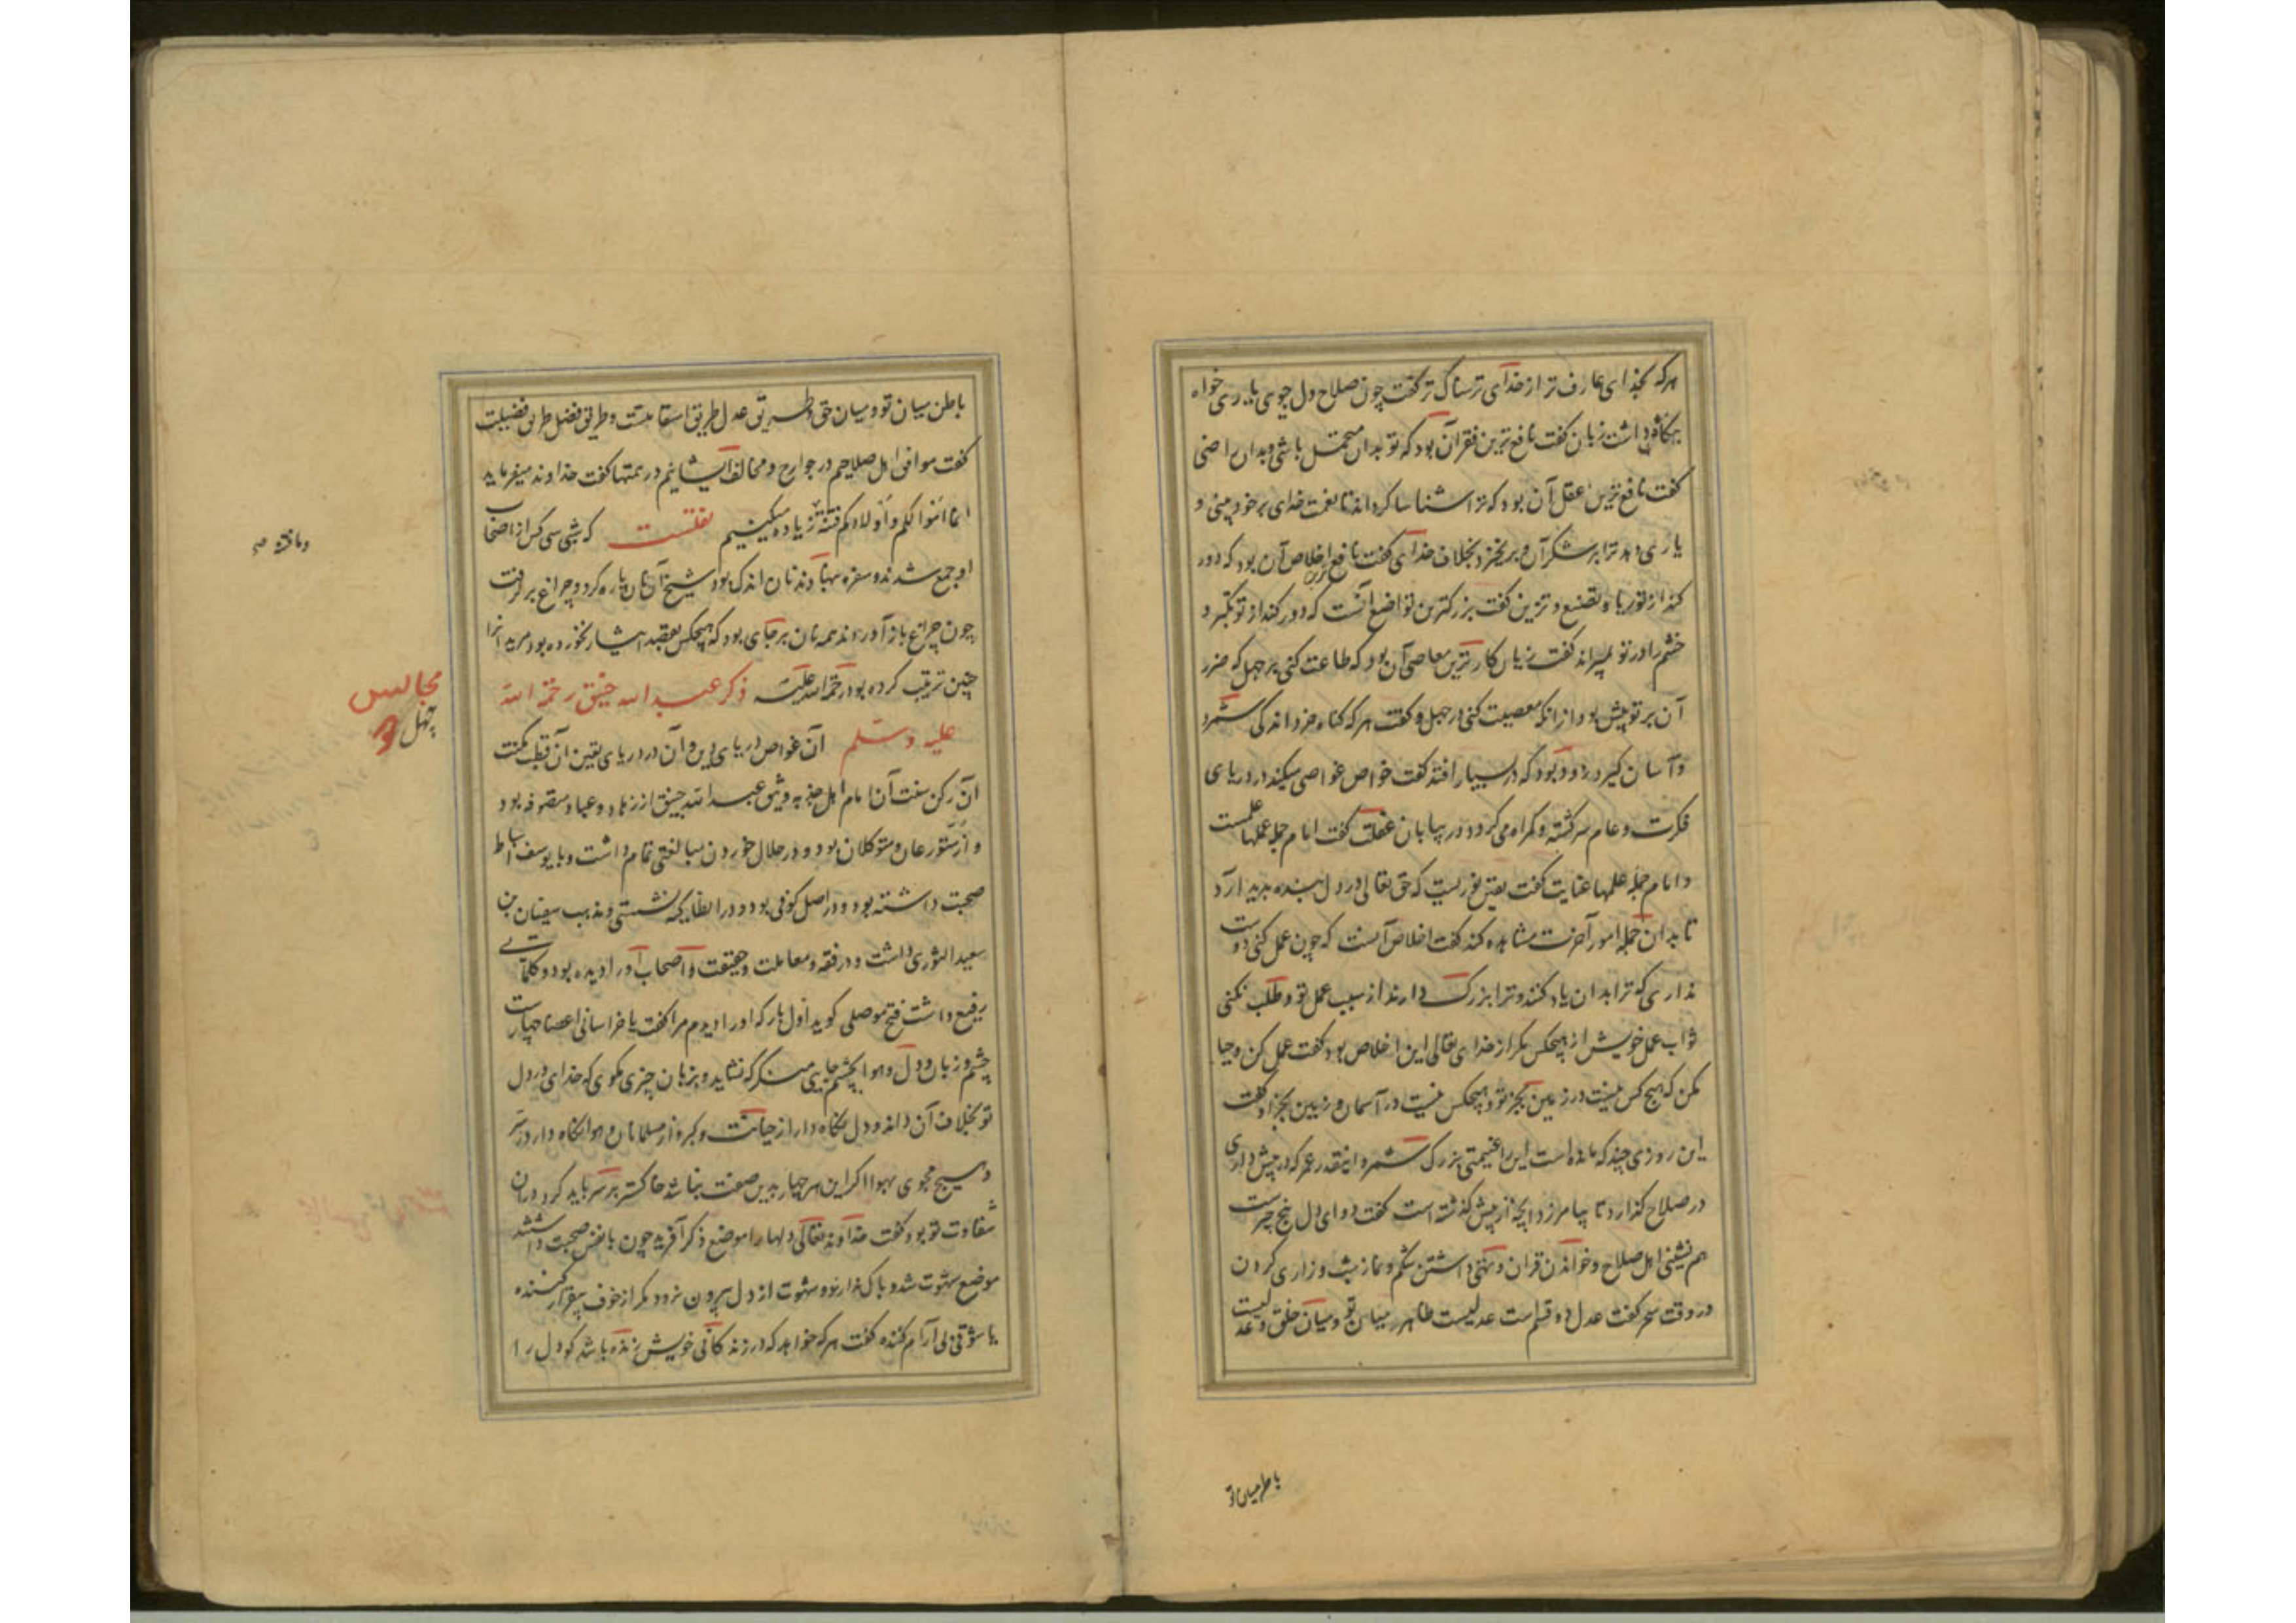 هرکه بخدای عارف تر از خدای ترسناک تر گفت چون صلاح دل جوی یاری خواه
بنگاه داشت زبان گفت نافع ترین فقر آن بود که تو بدان متحمل باشی و بدان راضی
گفت نافع ترین عقل آن بود که ترا شناسا گرداند تا نعمت خدای بر خود بینی و
یاری دهد ترا بر شکر آن و برخیزد بخلاف خدای گفت نافع ترین اخلاص آن بود که دور
کند از تو ریا و تصنع و تزین گفت بزرکترین تواضع آنست که دور کند از تو تکبر و
خشم را در تو بمیراند گفت زیان کارترین معاصی آن بود که طاعت کنی بر جهل که ضرر
آن بر تو بیش بود از انکه معصیت کنی در جهل و گفت هرکه گناه خرد اندکی شمرد
و آسان گیرد زود بود که در بسیار افتد گفت خواص غواصی میکند در دریای
فکرت و عام سرگشته و گمراه می گردد در بیابان غفلت گفت امام جمله عملها علمست
و امام جمله علمها عنایت گفت یقین نوریست که حق تعالی در دل بنده پدید آرد
تا بدان جمله امور آخرت مشاهده کند گفت اخلاص آنست که چون عمل کنی دوست
نداری که ترا بدان یاد کنند و ترا بزرگ دارند از سبب عمل تو و طلب نکنی
ثواب عمل خویش از هیچکس مگر از خدای تعالی این اخلاص بود گفت عمل کن و چنان
کن که هیچ کس نیست در زمین بجز تو و هیچکس نیست در آسمان و زمین بجز او گفت
این روزی چند که مانده است این را غنیمتی بزرگ شمر و اینقدر عمر که در پیش داری
در صلاح گذار تا بیامرزد آنچه از پیش گذشته است گفت دوای دل پنج چیزست
هم نشینی اهل صلاح و خواندن قران و تهی داشتن شکم و نماز شب و زاری کردن
در وقت سحر گفت عدل دو قسم است عدلیست ظاهر میان تو و میان خلق و عدلیست
باطن میان تو
باطن میان تو و میان حق و طریق عدل طریق استقامتست و طریق فضل طریق فضیلت
گفت موافق اهل صلاحیم در جوارح و مخالف ایشانیم در همتها گفت خداوند میفرماید
انما اموالکم و اولادکم فتنة و ما فتنه زیاده میکنیم نقلست که شبی سی کس از اصحاب
او جمع شدند و سفره بنهادند نان اندک بود شیخ آن نان پاره کرد و چراغ بر گرفت
چون چراغ باز آوردند همه نان بر جای بود که هیچکس بقصد ایثار نخورده بود مریدانرا
چنین تربیت کرده بود رحمة الله علیه ذکر عبد الله خبیق رحمة الله
علیه وسلم آن غواص دریای دین و آن در دریای یقین آن قطب مکنت
آن رکن سنت آن امام اهل جذبه و عبد الله خبیق از زهاد و عباد متصوفه بود
و از متورعان و متوکلان بود و در حلال خوردن مبالغتی تمام داشت و با یوسف اسباط
صحبت داشته بود و در اصل کوفی بود و در انطاکیه نشستی و مذهب سفیان بن
سعید الثوری داشت و در فقه و معاملت و حقیقت و اصحاب او را دیده بود و کلماتے
رفیع داشت فتح موصلی گوید اول بار که او را دیدم مرا گفت یا خراسانی اعضا چهارست
چشم و زبان و دل و هوا بچشم جایی منگر که نشاید و بزبان چیزی مگوی که خدای در دل
تو بخلاف آن داند و دل نگاه دار از خیانت و کبر و از مسلمانان و هوا نگاه دار در شر
و هیچ مجوی بهوا اگر این هر چهار بدین صفت نباشد خاکستر بر سر باید کرد در آن
شقاوت تو بود گفت خداوند تعالی دلها را موضع ذکر آفرید چون با نفس صحبت داشتند
موضع شهوت شد و باک ندارند و شهوت از دل بیرون نرود مگر از خوف بیقرار کننده
یا شوقی بی آرام کننده گفت هرکه خواهد که در زندگانی خویش زنده باشد گو دل را
وما فتنه صح
مجالس
چهل